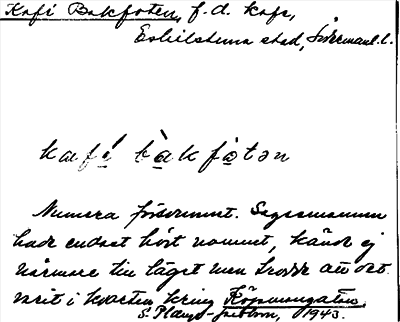 Kafé Bakfoten, f.d. kafé,
Eskilstuna stad, Söderman.l.
kafé bàkfòtən
Numera försvunnet. Sagesmannen
hade endast hört namnet, kände ej
närmare till läget men trodde att det
varit i kvarten kring Köpmangatan.
S. 1943.